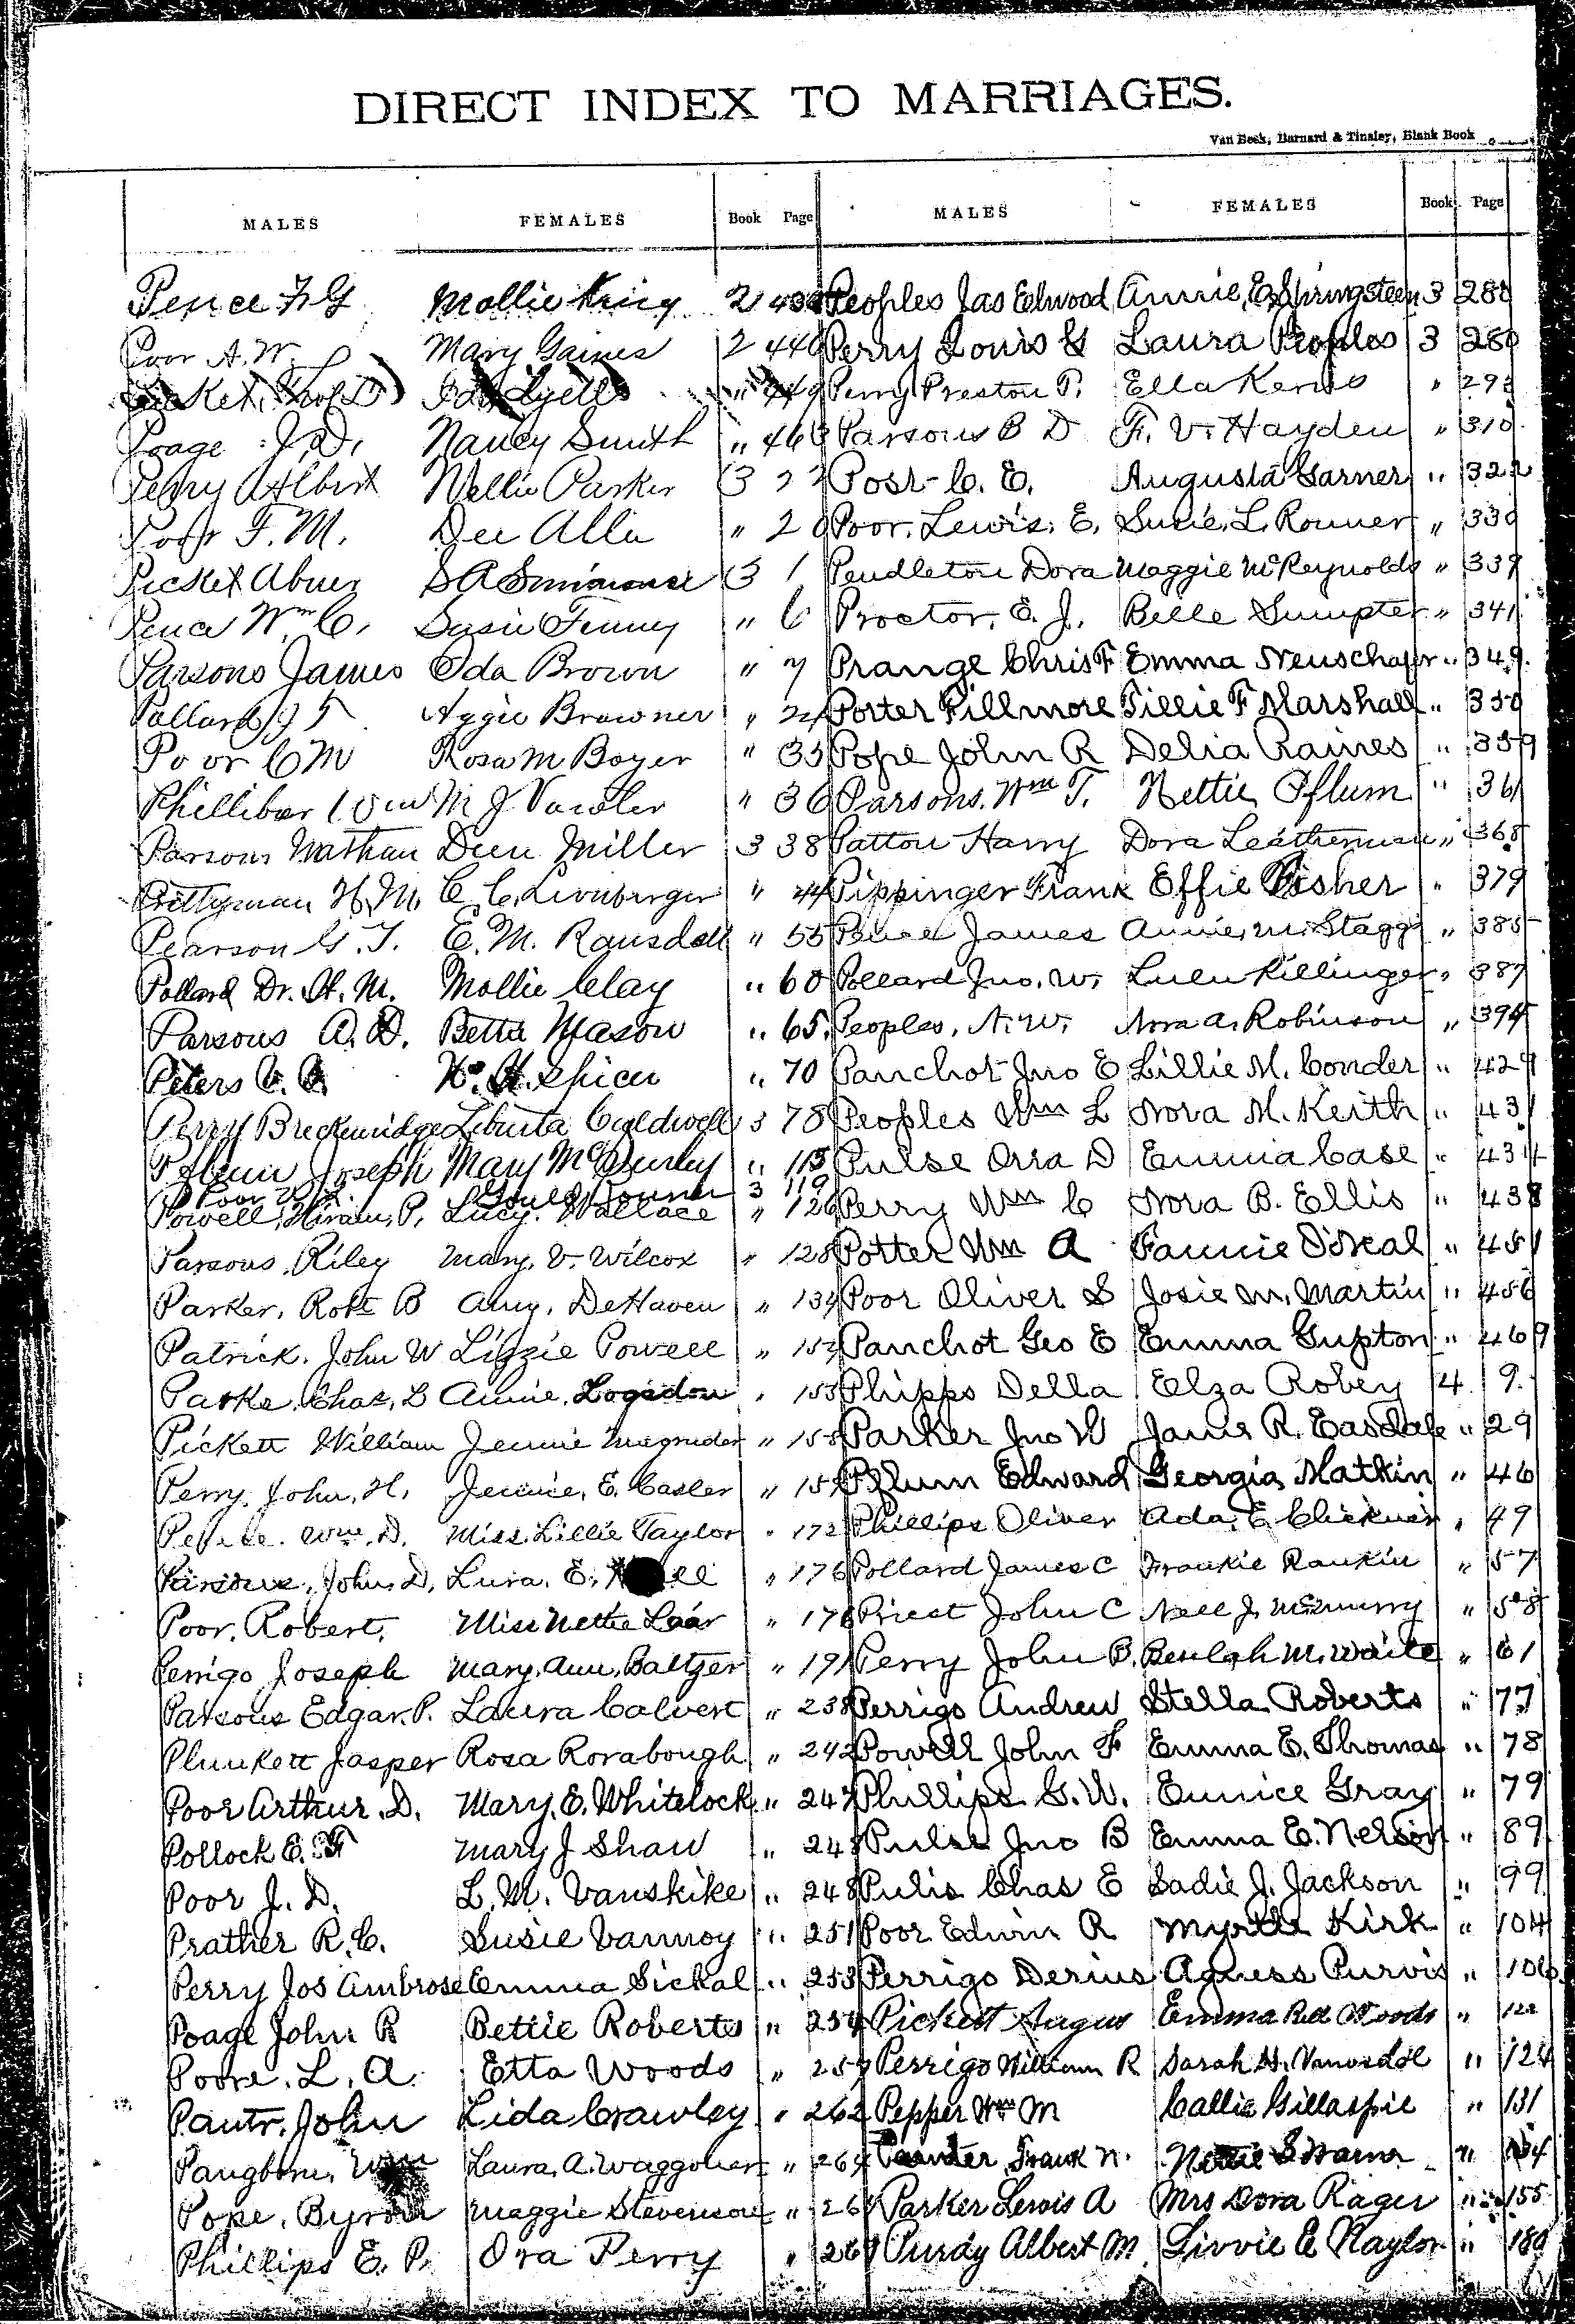 DIRECT INDEX TO MARRIAGES.
Van Beek, Barnard & Tinsley, Blank Book
MALES FEMALES Book Page MALES FEMALES Book Page
Pence F G Mollie King 2 Peoples Jas Elwood Annie E Springsteen 3 288
Poor A. W. Mary Gaines 2 440 Perry Louis G Laura Peoples 3 280
" 449 Perry Preston P. Ella Kerns " 293
Poage J. D. Nancy Smith " 463 Parsons B D F. V. Hayden " 310
Perry Albert Nellie Parker 3 22 Post C. E. Augusta Garner " 322
Poor F. M. Dee Alla " 20 Poor, Lewis. E. Susie. L. Rouner " 330
Picket Abner S A Simmons 3 1 Pendleton Dora Maggie McReynolds " 339
Pence Wm C. Susie Finney " 6 Proctor, E. J. Belle Sumpter " 341
Parsons James Oda Brown " 7 Prange Chris F Emma Neuschafer " 349
Pollard J T Aggie Browner " 24 Porter Fillmore Tillie F Marshall " 350
Poor C M Rosa M Boyer " 35 Pope John R Delia Raines " 359
Philliber M J Vawler " 36 Parsons. Wm T. Nettie Pflum " 361
Parsons Nathan Dee Miller 3 38 Patton Harry Dora Leatherman " 368
Prettyman H. M. C. C. Lionberger " 44 Pippinger Frank Effie Fisher " 379
Pearson G. T. E. M. Ransdell " 55 Pence James Annie M. Stagg " 385
Pollard Dr. H. M. Mollie Clay " 60 Pollard Jno. W. Lulu Killinger " 387
Parsons A. D. Bettie Mason " 65 Peoples, N. W. Nora A. Robinson " 394
Peters C. H. Spicer " 70 Panchot Jno E Lillie M. Conder " 429
Perry Breckenridge Liburta Caldwell 3 78 Peoples Wm L Nova M. Keith " 431
Pflum Joseph Mary McCurley " 115 Pulse Orra D Emma Case " 434
Poor 3 119
Powell, Hiram, P. Lucy. Wallace " 126 Perry Wm C Nova B. Ellis " 438
Parsons, Riley Mary. V. Wilcox " 128 Potter Wm A Fannie O'Neal " 451
Parker, Robt B Amy. DeHaven " 134 Poor Oliver S Josie M. Martin " 456
Patrick. John W Lizzie Powell " 153 Panchot Geo E Emma Gupton " 469
Parks. Chas. L Annie. Logsdon " 153 Phipps Della Elza Robey 4 9
Pickett William Jennie Magruder " 158 Parker Jno W Janie R. Easdale " 29
Perry. John. H. Jennie. E. Casler " 159 Pflum Edward Georgia Matkin " 46
Wm. D. Miss. Lillie Taylor " 172 Phillips Oliver Ada. E. Clickner " 49
Parsons, John. D. Lura. E. " 176 Pollard James C Frankie Rankin " 57
Poor. Robert. Miss Nettie Laar " 178 Priest John C Nell J. McMurry " 58
Perrigo Joseph Mary. Ann. Baltzer " 191 Perry John B. Beulah M. Waite " 61
Parsons Edgar. P. Laura Calvert " 238 Perrigo Andrew Stella Roberts " 77
Plunkett Jasper Rosa Rorabough " 242 Powell John F Emma E. Thomas " 78
Poor Arthur. D. Mary. E. Whitelock " 247 Phillips G. W. Eunice Gray " 79
Pollock E. F Mary J Shaw " 248 Pulse Jno B Emma E. Nelson " 89
Poor J. D. L. M. Vanskike " 248 Pulis Chas E Sadie J. Jackson " 99
Prather R. C. Susie Vannoy " 251 Poor Edwin R Myrtle Kirk " 104
Perry Jos Ambrose Emma Sickal " 253 Perrigo Derius Agness Purvis " 106
Poage John R Bettie Roberts " 254 Pickett Angus Emma Bell Woods " 122
Poore. L. A. Etta Woods " 257 Perrigo William R Sarah H. Vanosdol " 124
Pautr. John Lida Crawley " 262 Pepper Wm M Callie Gillaspie " 131
Pangborn, Wm Laura. A. Waggoner " 264 Painter Frank N. "
Pope. Byron Maggie Stevenson " 264 Parker Lewis A Mrs Dora Rager " 155
Phillips E. P. Ora Perry " 267 Purdy Albert M Livvie E Naylor " 180